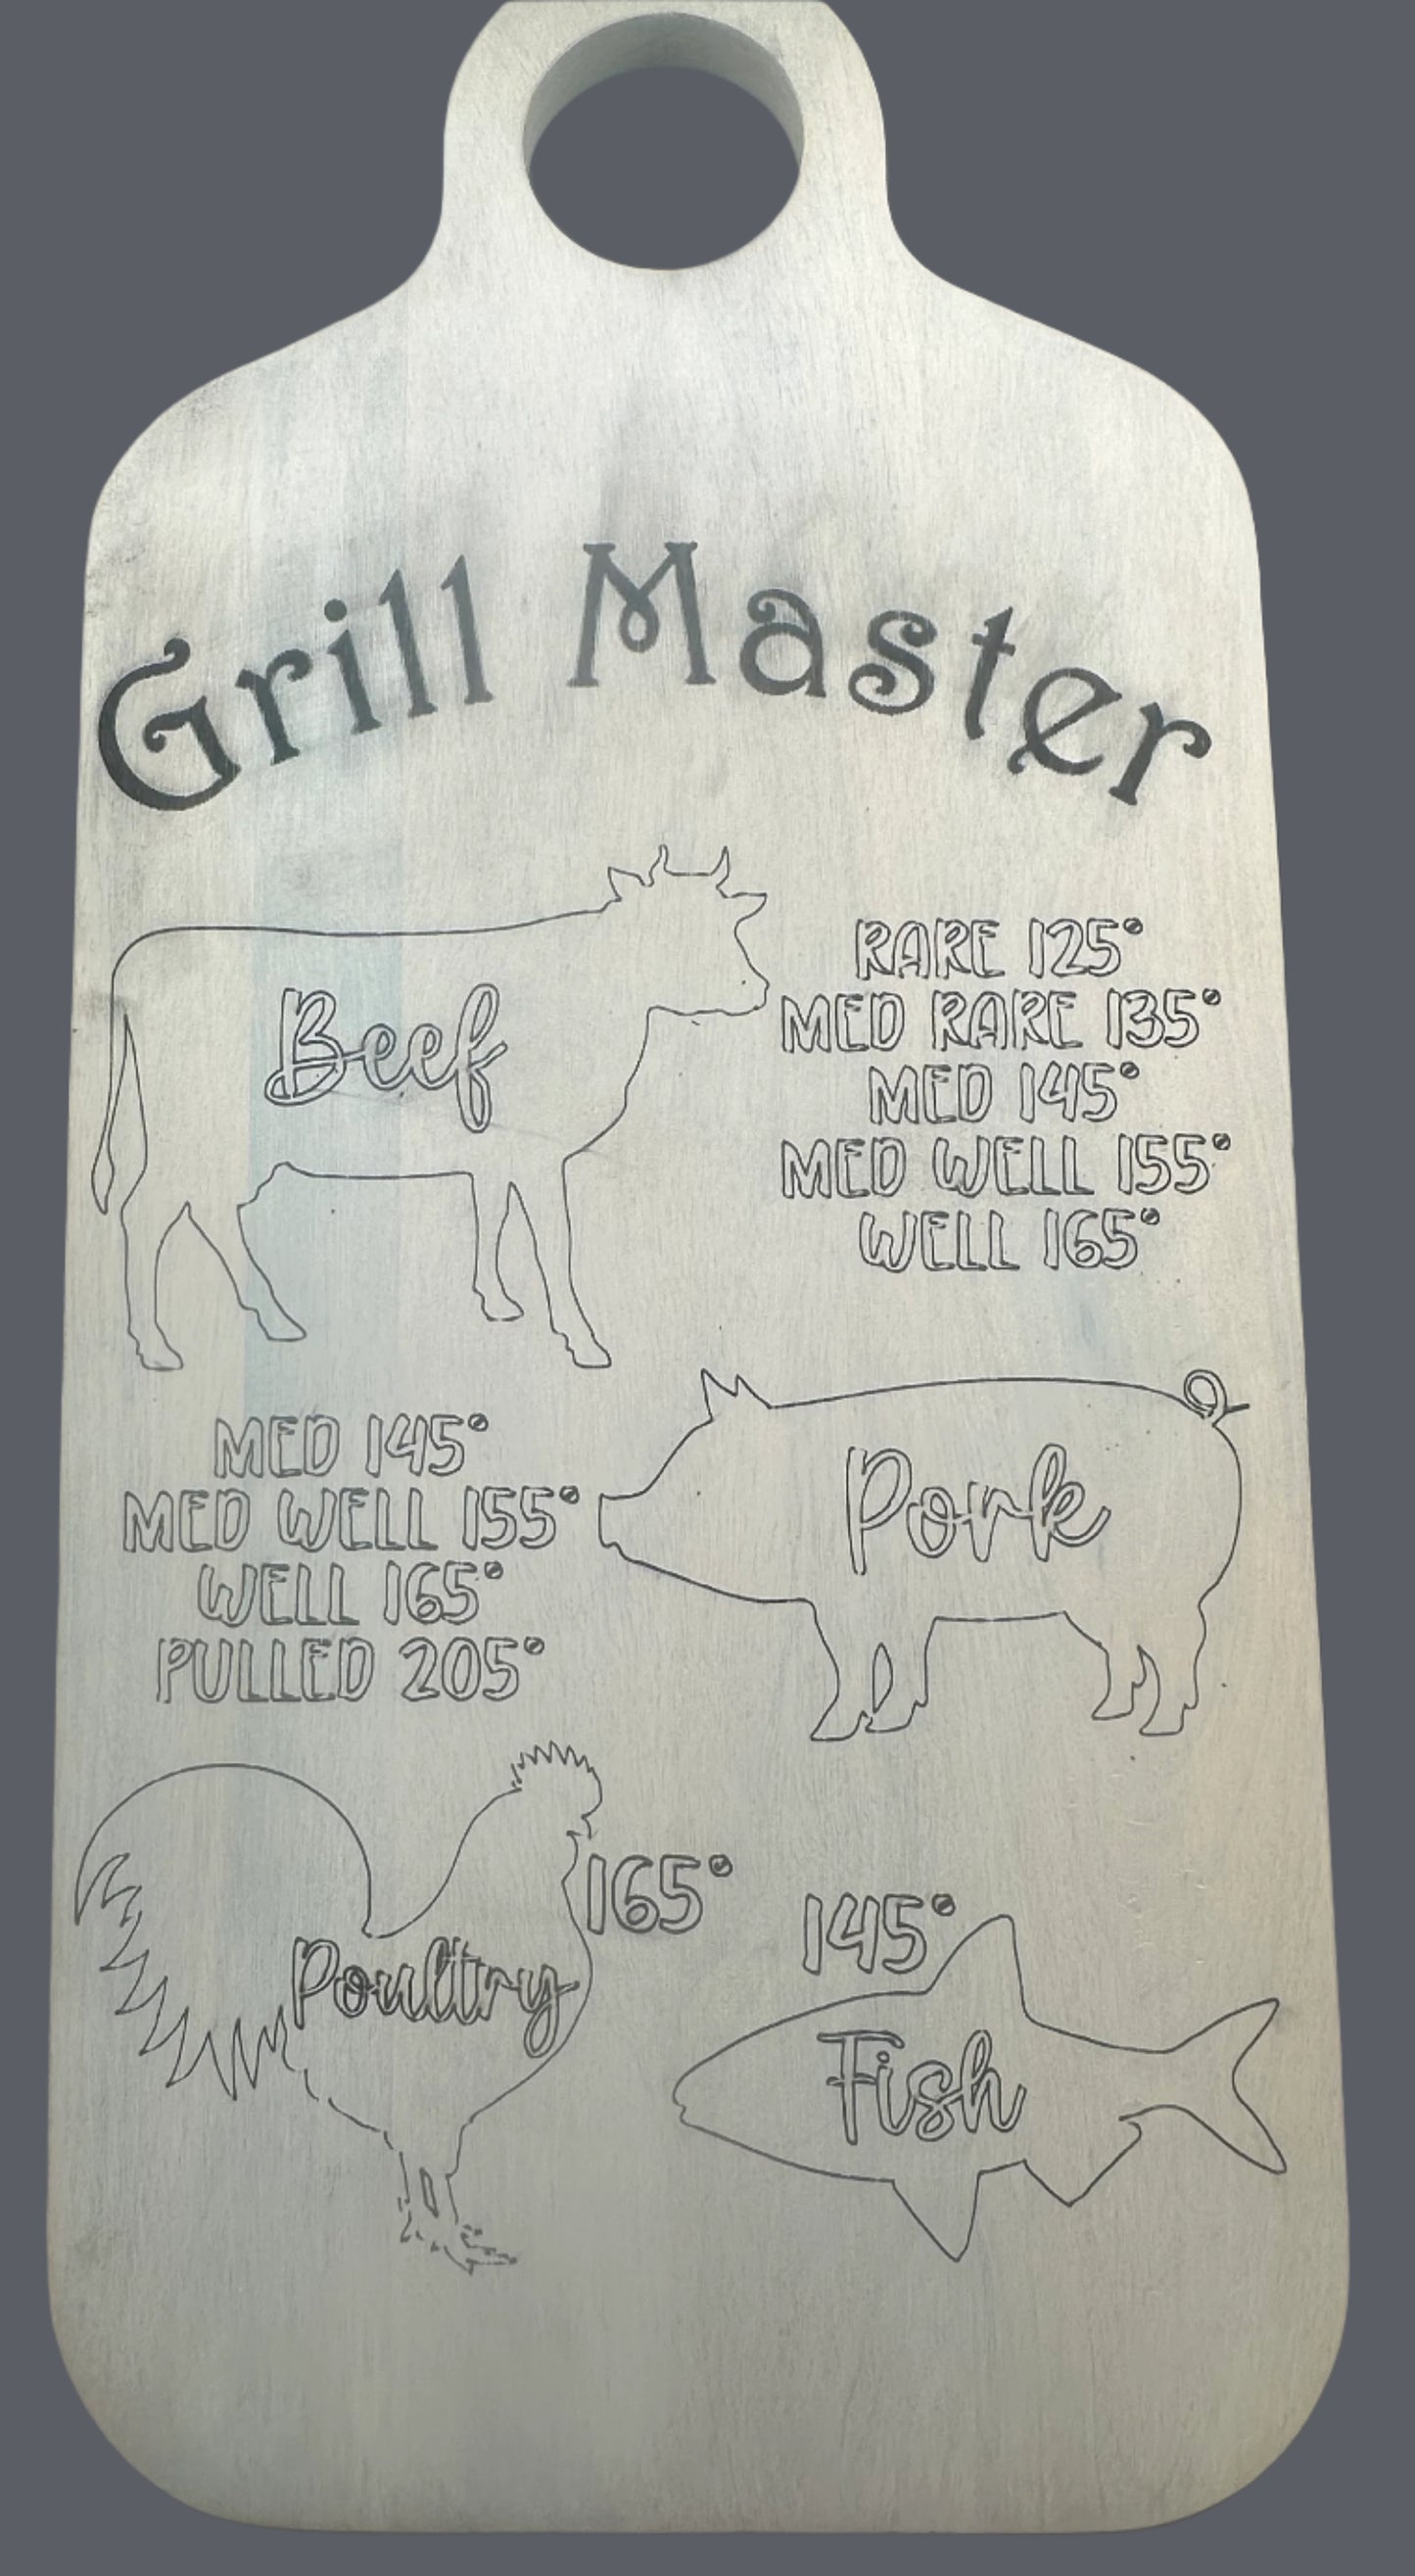 Grill Master
Beef
RARE 125°
MED RARE 135°
MED 145°
MED WELL 155°
WELL 165°
MED 145°
MED WELL 155°
WELL 165°
PULLED 205°
Pork
Poultry
165°
145°
Fish